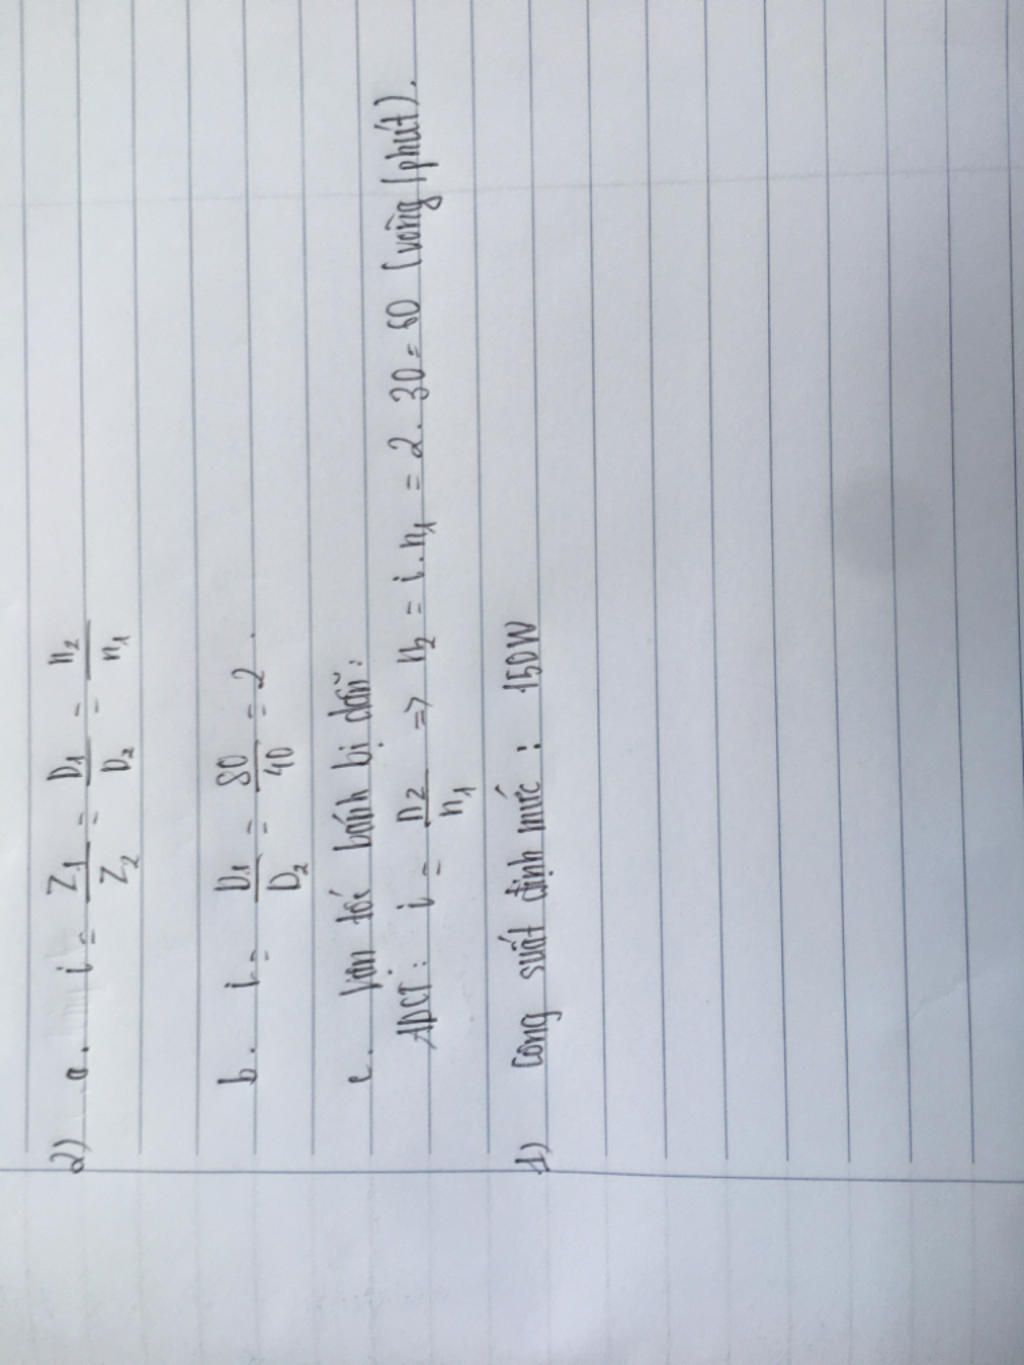 2) a. i = Z1/Z2 = D1/D2 = n2/n1
b. i = D1/D2 = 80/40 = 2.
c. Vận tốc bánh bị dẫn:
ADCT: i = n2/n1 => n2 = i.n1 = 2.30 = 60 (vòng/phút).
1) Công suất định mức: 150W